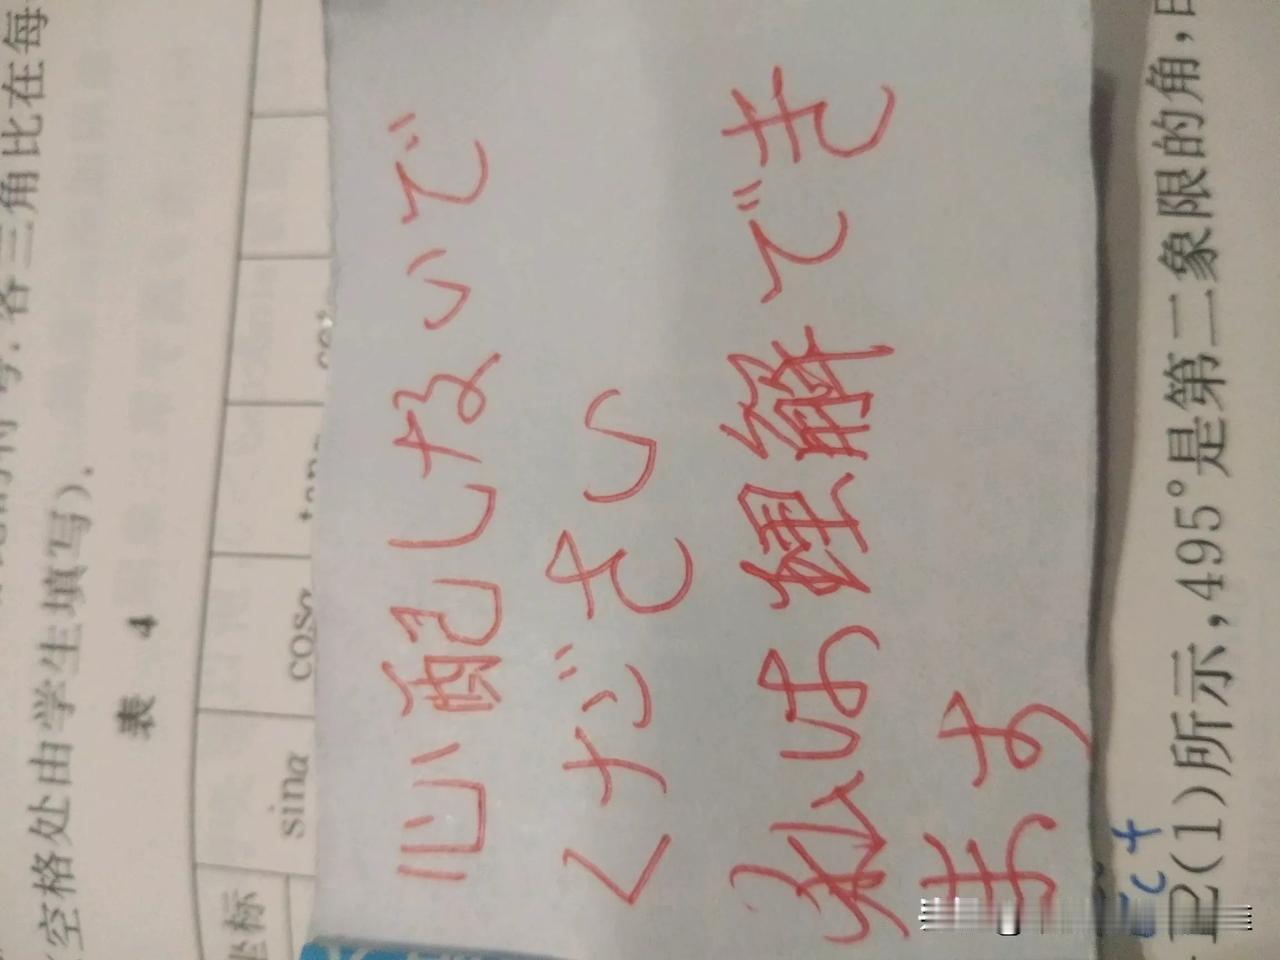 各三角比在每
空格处由学生填写).
表 4
坐标
sinα
cosα
心配しないで
ください
私は理解でき
ます
(1)所示,495°是第二象限的角,